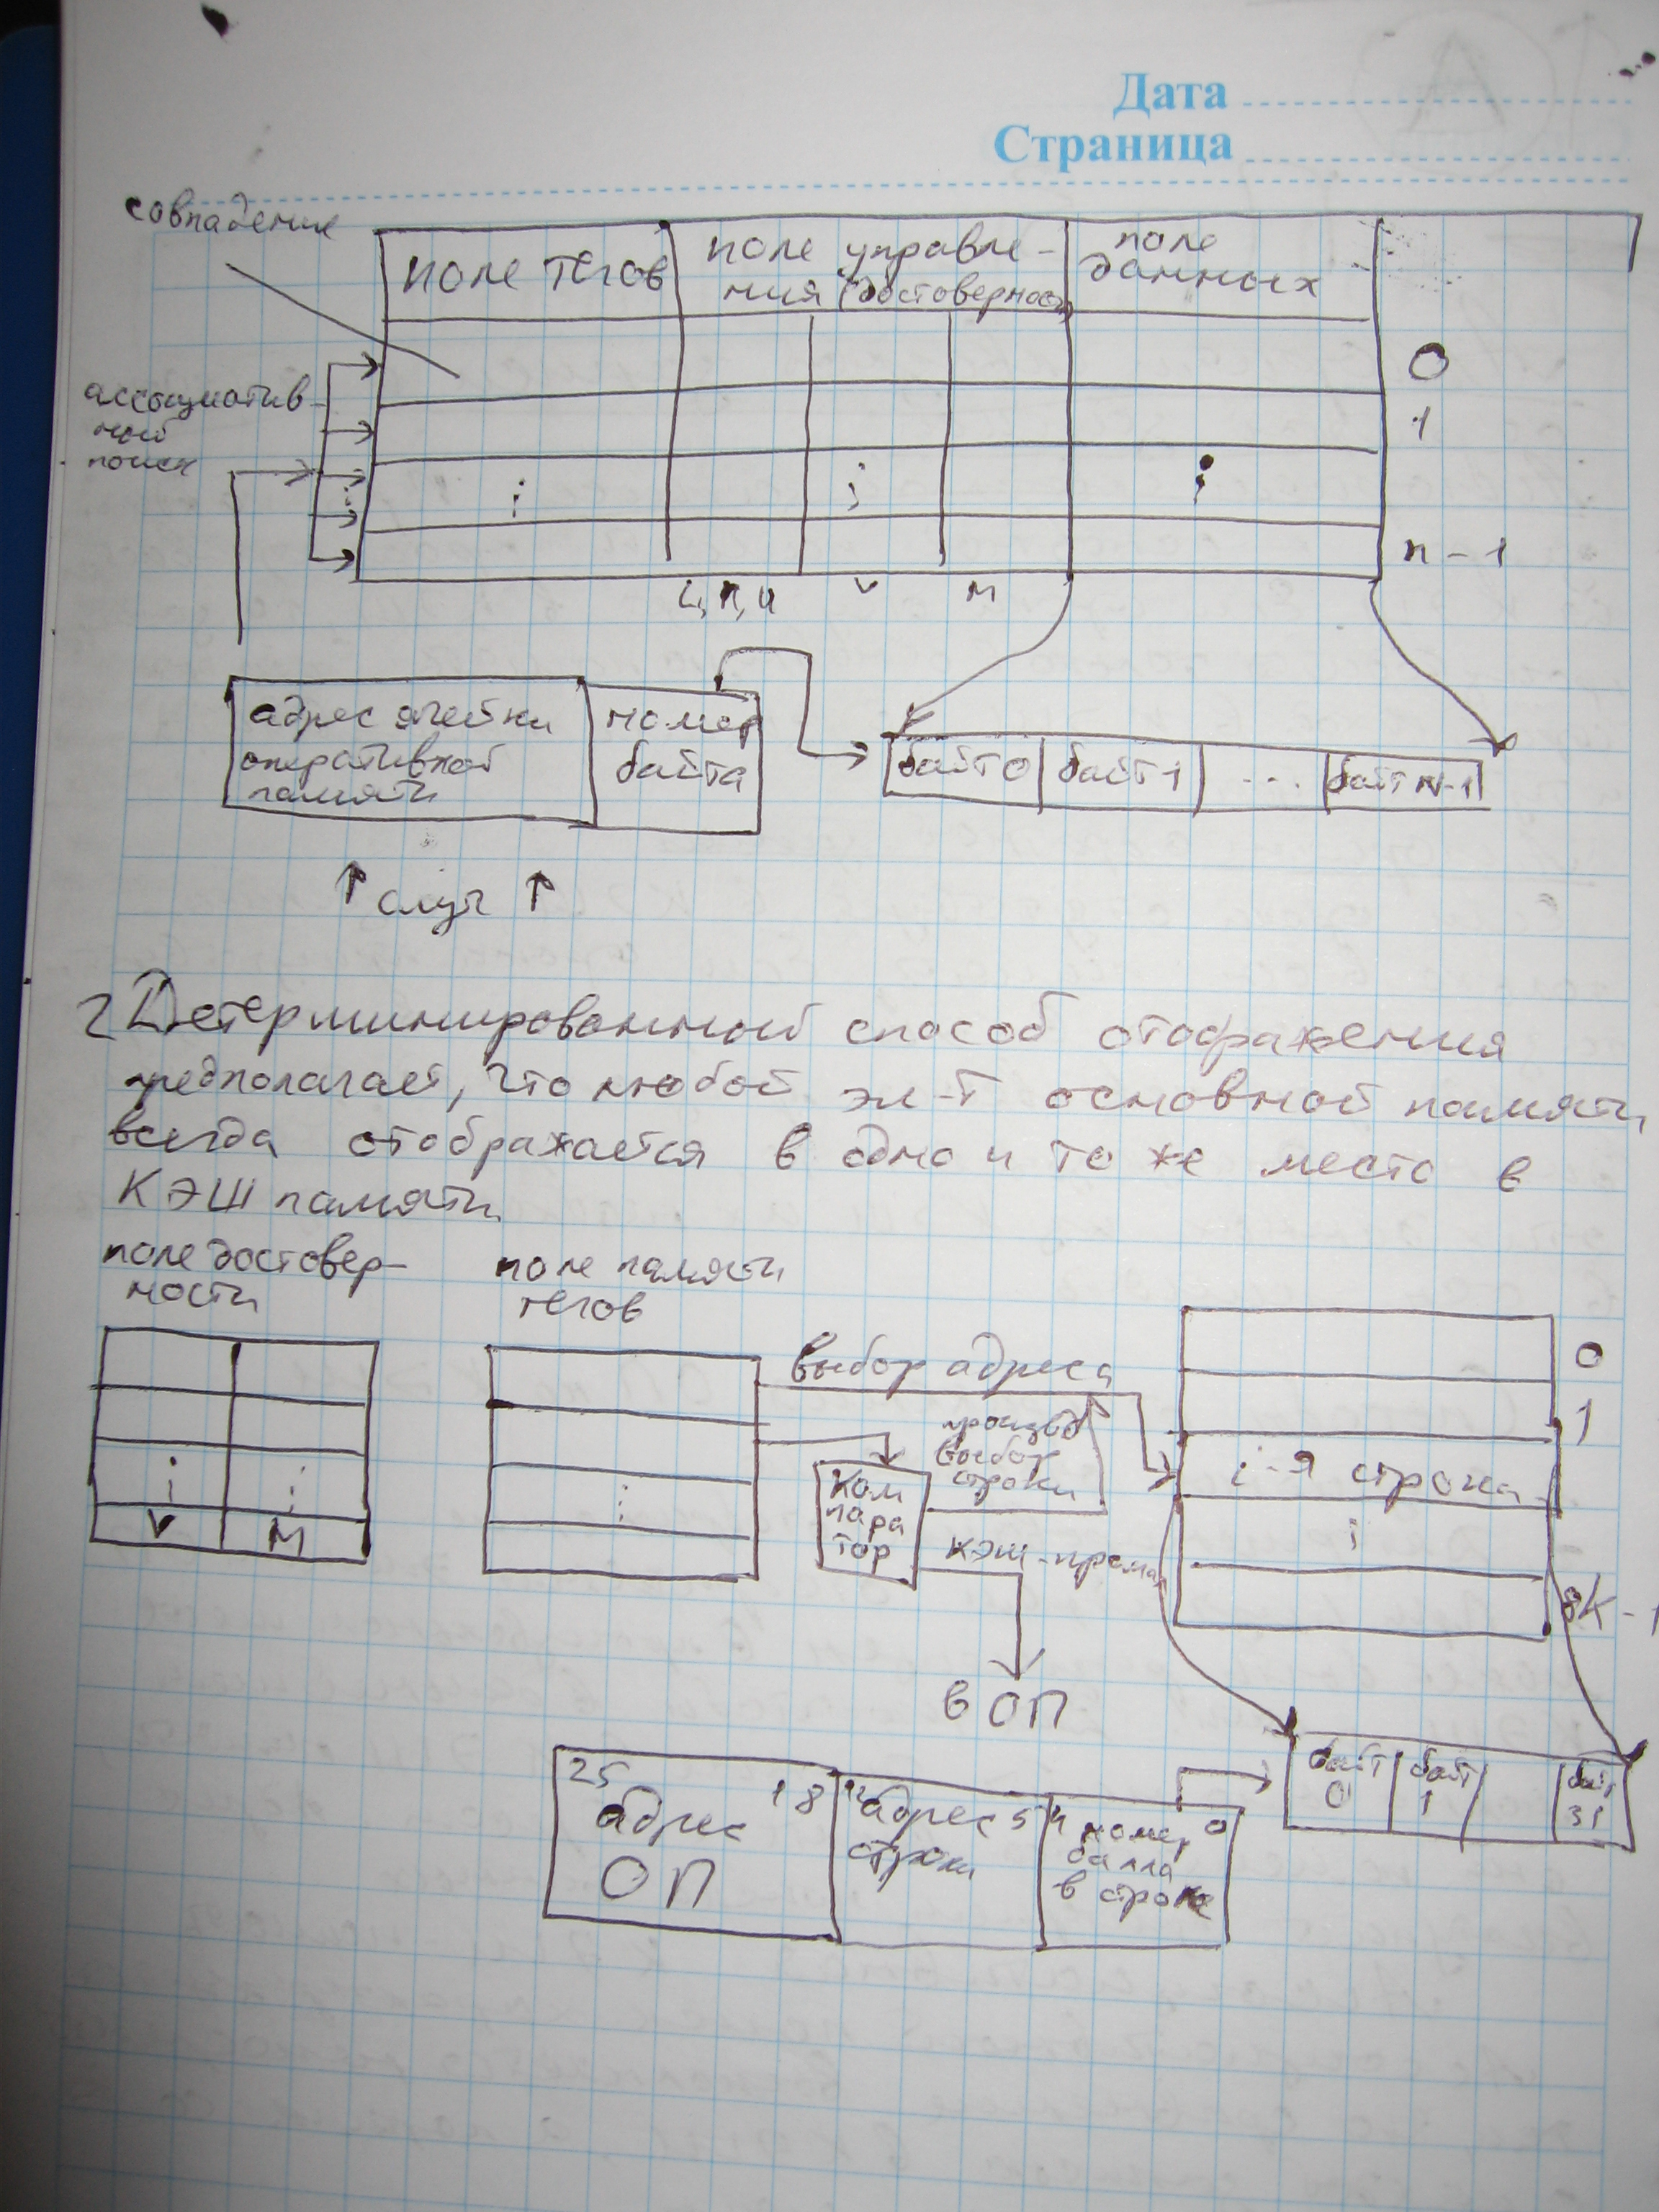 Дата
Страница
совпадение
поле тегов
поле управле-
ния (достоверност
поле
данных
0
ассоциатив
ный
поиск
1
n-1
V
М
адрес ячейки
оперативной
памяти
номер
байта
байт 0
байт 1
...
байт N-1
↑ случ ↑
2 Детерминированный способ отображения
предполагает, что любой эл-т основной памяти
всегда отображается в одно и то же место в
КЭШ памяти
поле достовер-
ности
поле памяти
тегов
выбор адреса
0
1
произвд
выбор
строки
i-я строка
Ком
пара
тор
V
М
КЭШ-промах
8К-1
в ОП
25
18
адрес
ОП
12
адрес
5
строки
4
номер
0
в строке
байт
0
байт
1
байт
31